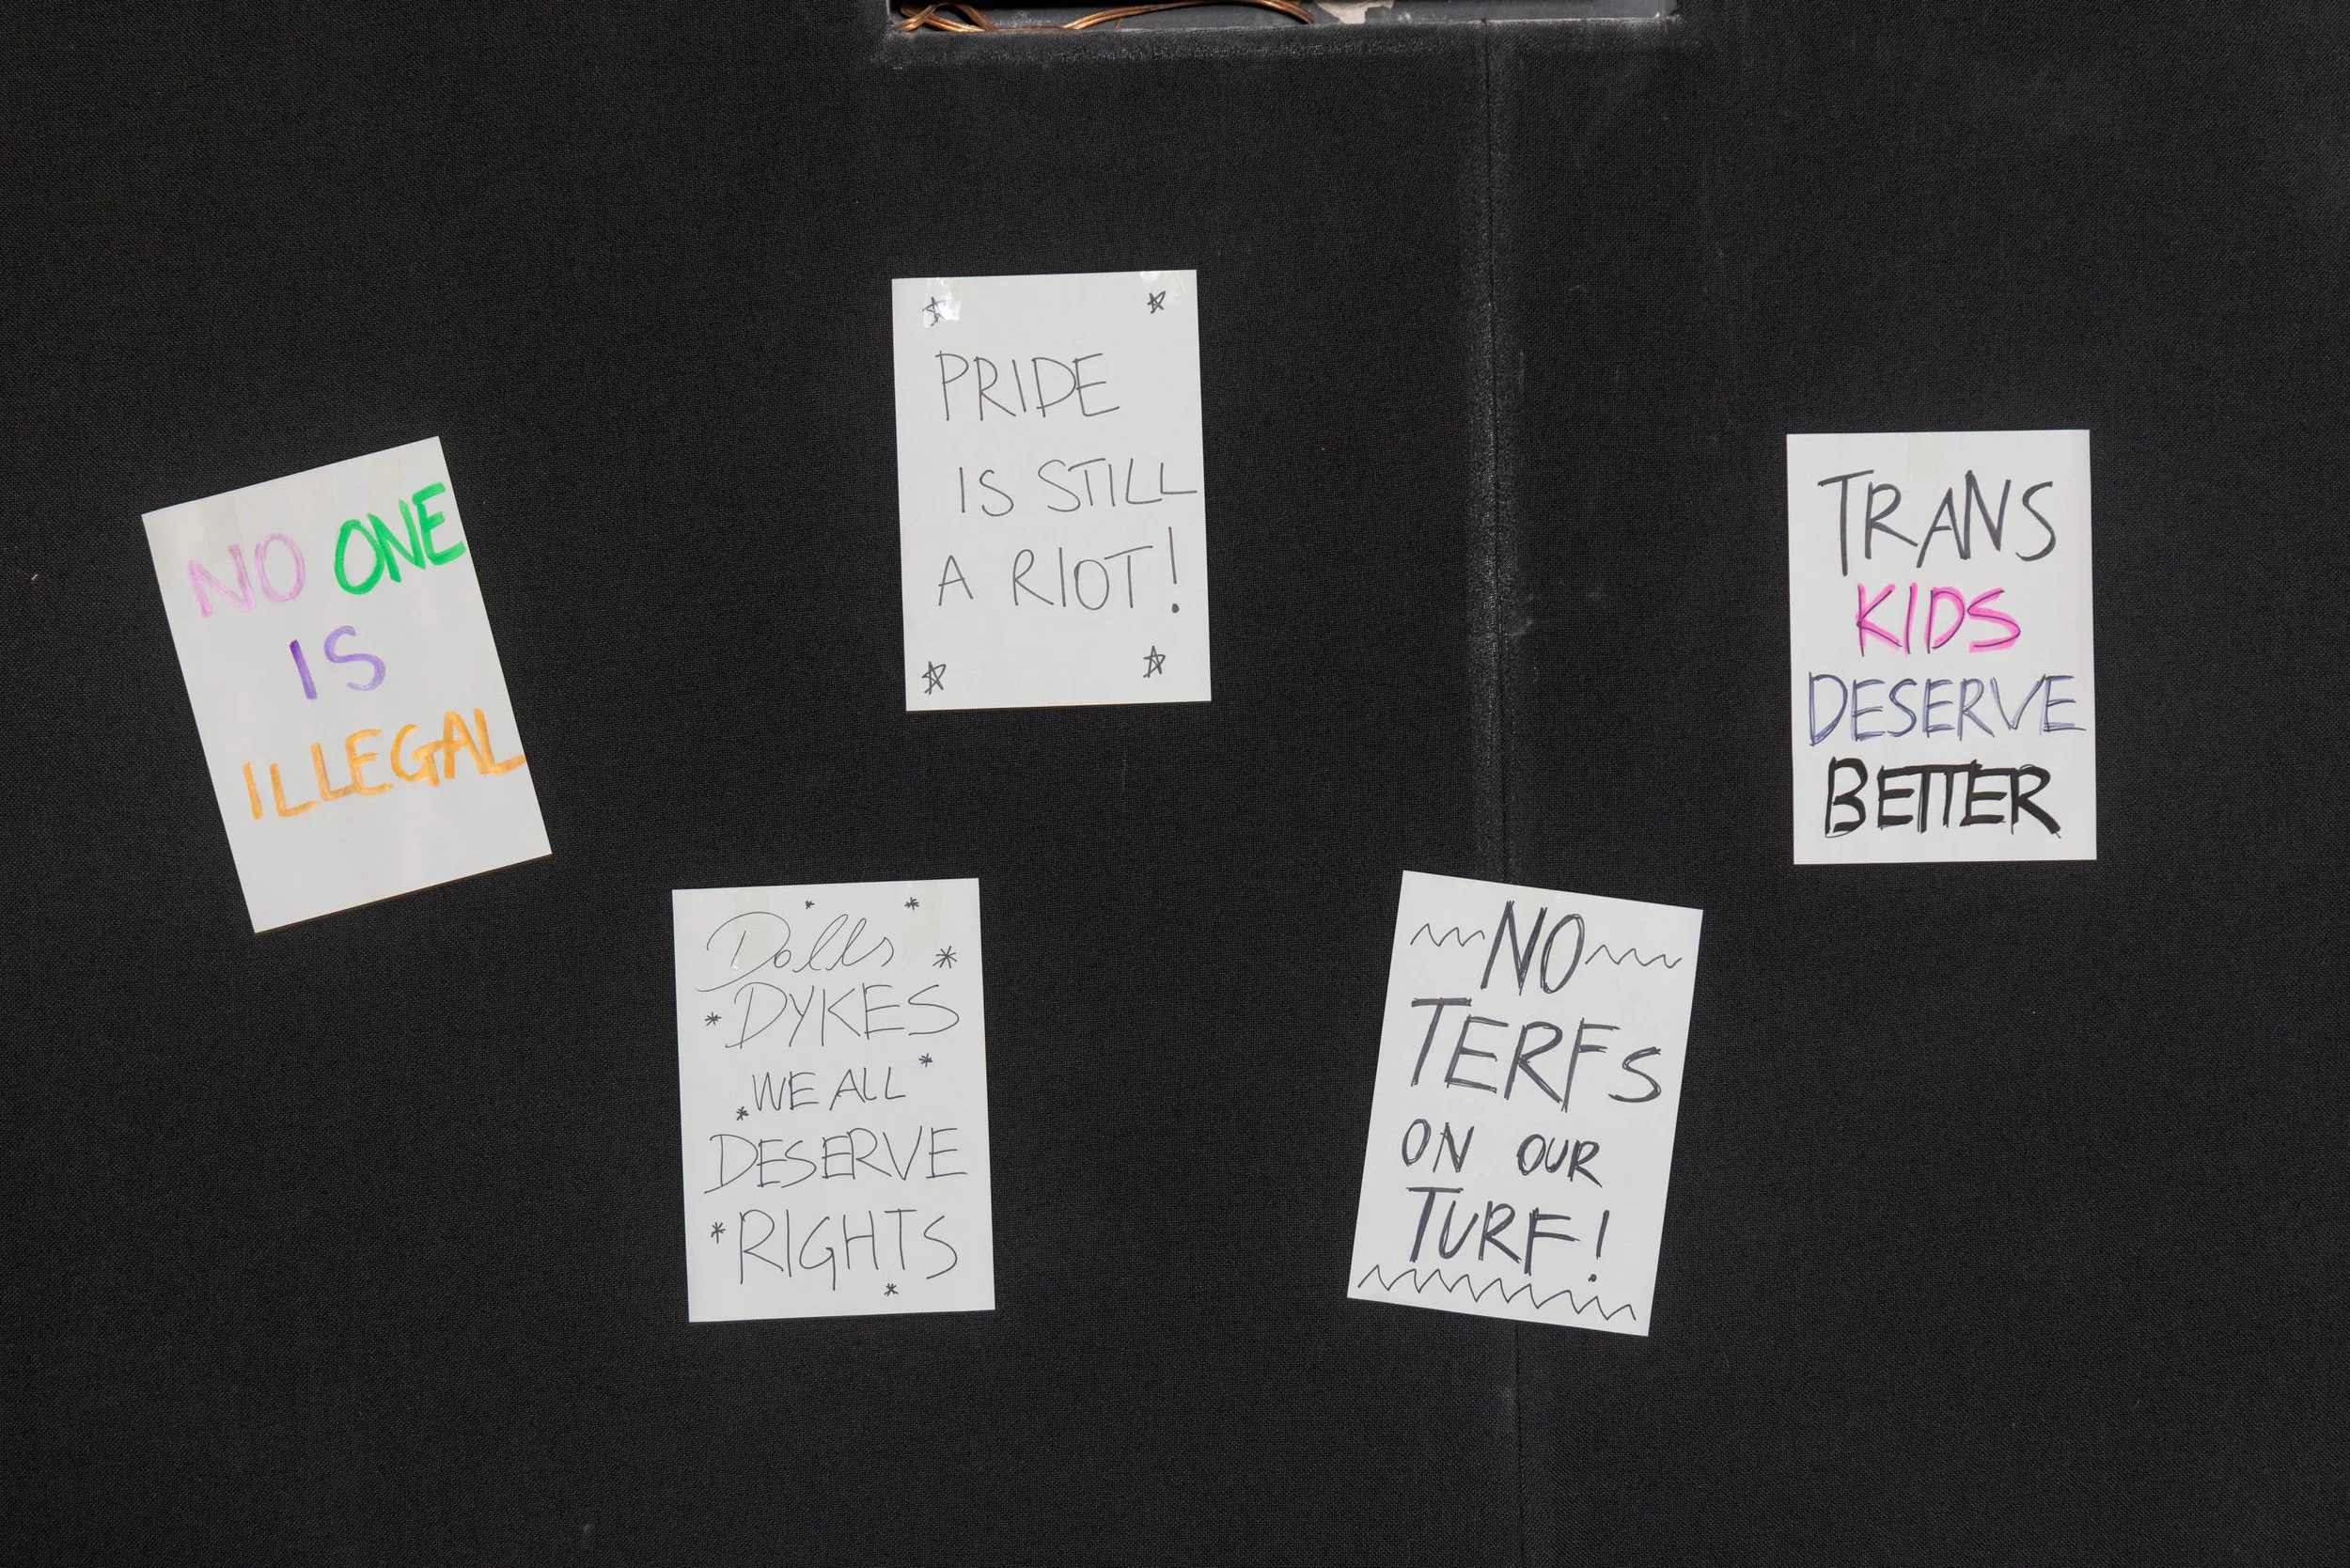 NO ONE
IS
ILLEGAL
PRIDE
IS STILL
A RIOT!
Dolls
DYKES
WE ALL
DESERVE
RIGHTS
NO
TERFS
ON OUR
TURF!
TRANS
KIDS
DESERVE
BETTER